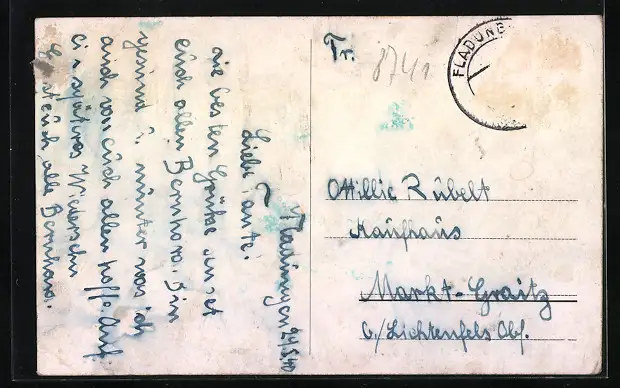 Fladungen 24/5 40
Liebe Tante!
die besten Grüße sendet
euch allen Bernhard. Bin
gesund u. munter was ich
auch von euch allen hoffe. Auf
ein späteres Wiedersehn
euch alle Bernhard.
Tr.
8741
FLADUNG
Ottillie Rübelt
Kaufhaus
Markt-Graitz
b./Lichtenfels Obf.